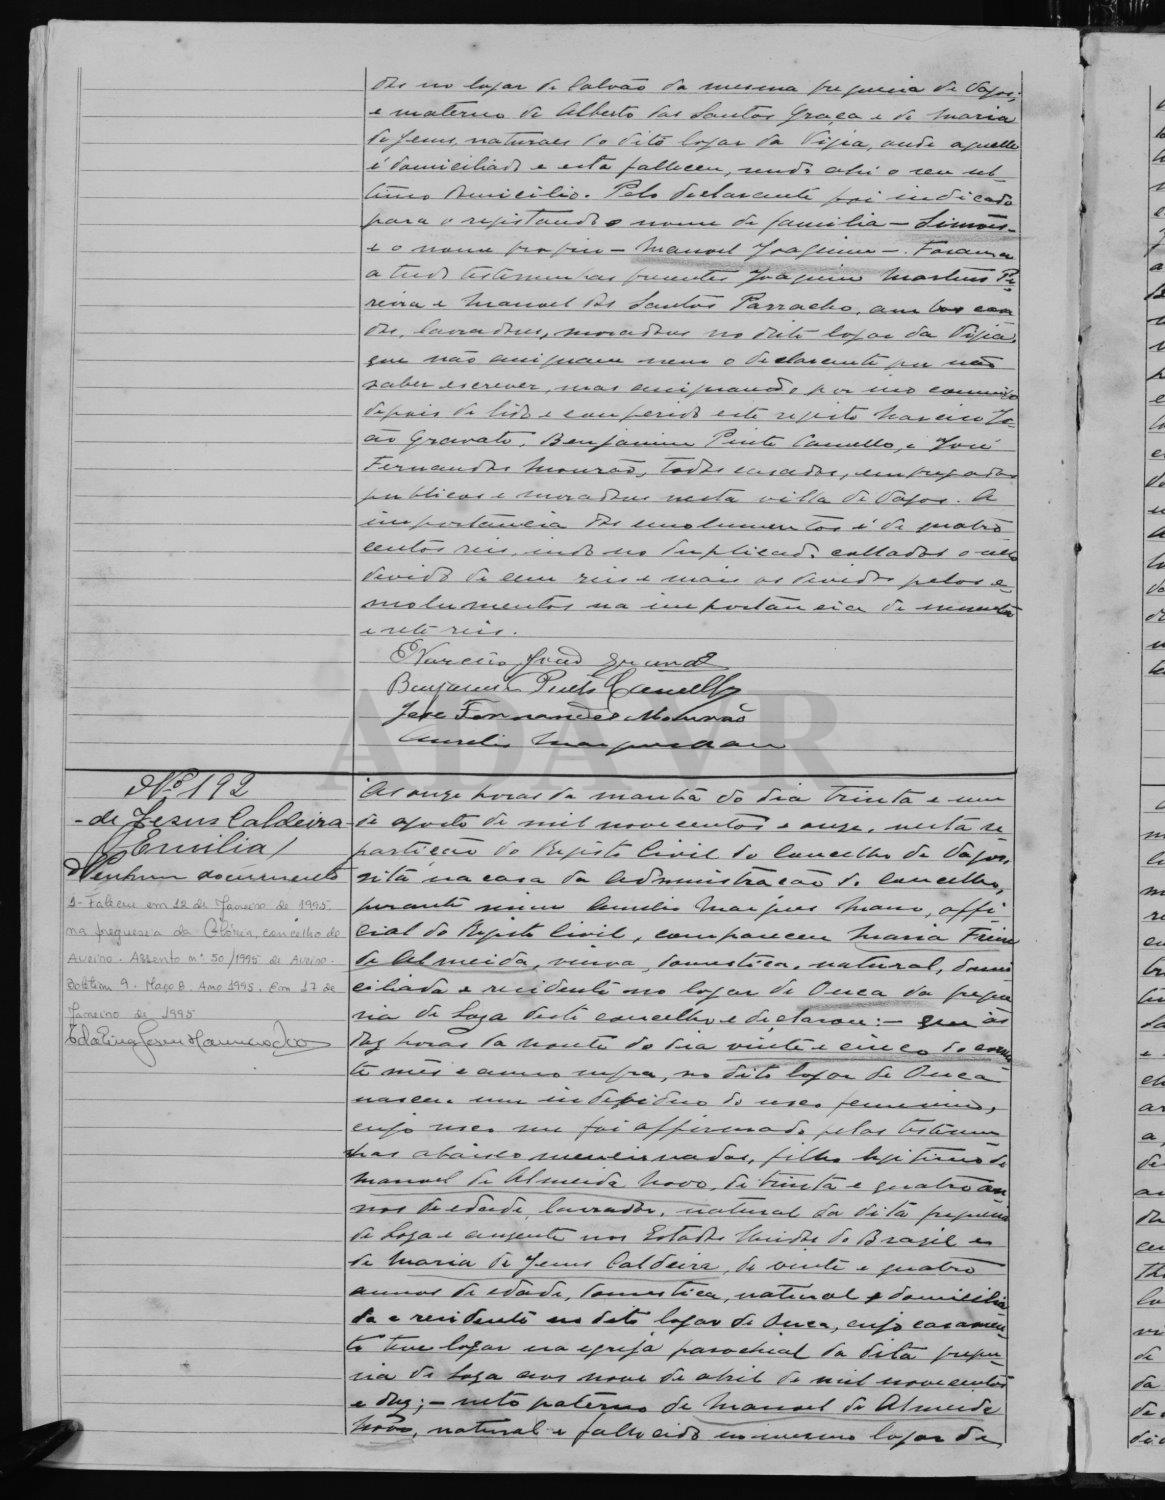 des no logar de Calvão da mesma freguesia de Vagos;
e materno de Alberto dos Santos Graça e de Maria
de Jesus, naturaes do dito logar da Vigia, onde aquelle
é domiciliado e esta falleceu, sendo ahi o seu ul-
timo domicilio. Pelo declarante foi indicado
para o registando o nome de familia - Simões -
e o nome proprio - Manoel Joaquim -. Foram a
a tudo testemunhas presentes Joaquim Martins Pe-
reira e Manoel dos Santos Parracho, ambos casa
dos, lavradores, moradores no dito logar da Vigia,
que não assignam nem o declarante por não
saber escrever, mas assignando por isso commigo
depois de lido e conferido este registo Narciso Jo-
ão Gravato, Benjamim Pinto Camello, e José
Fernandes Mourão, todos casados, empregados
publicos e moradores nesta villa de Vagos. A
importancia dos emolumentos é de quatro
centos reis, indo no duplicado collados o sello
devido de cem reis e mais os devidos pelos e-
molumentos na importancia de
e sete reis.
Narciso João Gravato
Benjamim Pinto Camello
José Fernandes Mourão
Amelio Marques Mano
ADAVR
Nº 192
- de Jesus Caldeira -
Emilia /
Nenhum documento
1- Faleceu em 12 de Janeiro de 1995
na freguesia da Glória, concelho de
Aveiro. Assento nº 50/1995 de Aveiro.
Boletim 9. Maço 8. Ano 1995. Em 17 de
Janeiro de 1995
As onze horas da manhã do dia trinta e um
de agosto de mil novecentos e onze, nesta re
partição do Registo Civil do Concelho de Vagos,
sita na casa da Administração do Concelho,
perante mim Amelio Marques Mano, offi
cial do Registo Civil, compareceu Maria Freire
de Almeida, viuva, domestica, natural, domi
ciliada e residente no logar de Ouca da fregue
sia de Soza deste concelho e declarou: - que ás
dez horas da noute do dia vinte e cinco do corren
te mês e anno supra, no dito logar de Ouca
nasceu um individuo do sexo feminino,
cujo sexo me foi affirmado pelas testemu
nhas abaixo mencionadas, filho legitimo de
Manoel de Almeida Novo, de trinta e quatro an
nos de edade, lavrador, natural da dita freguesia
de Soza e ausente nos Estados Unidos do Brazil e
de Maria de Jesus Caldeira, de vinte e quatro
annos de edade, domestica, natural e domicilia
da e residente no dito logar de Ouca, cujo casamen-
to teve logar na egreja parochial da dita fregue-
sia de Soza aos nove de abril de mil novecentos
e dez; - neto paterno de Manoel de Almeida
Novo, natural e fallecido no mesmo logar de